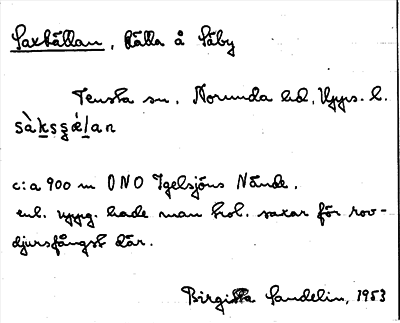 Saxkällan, källa å Säby
Tensta sn, Norunda hd, Upps. l.
sàksʂæ̀lan
c:a 900 m ONO Igelsjöns N ände.
enl. uppg. hade man hol. saxar för rov-
djursfångst där.
Birgitta Sandelin, 1953